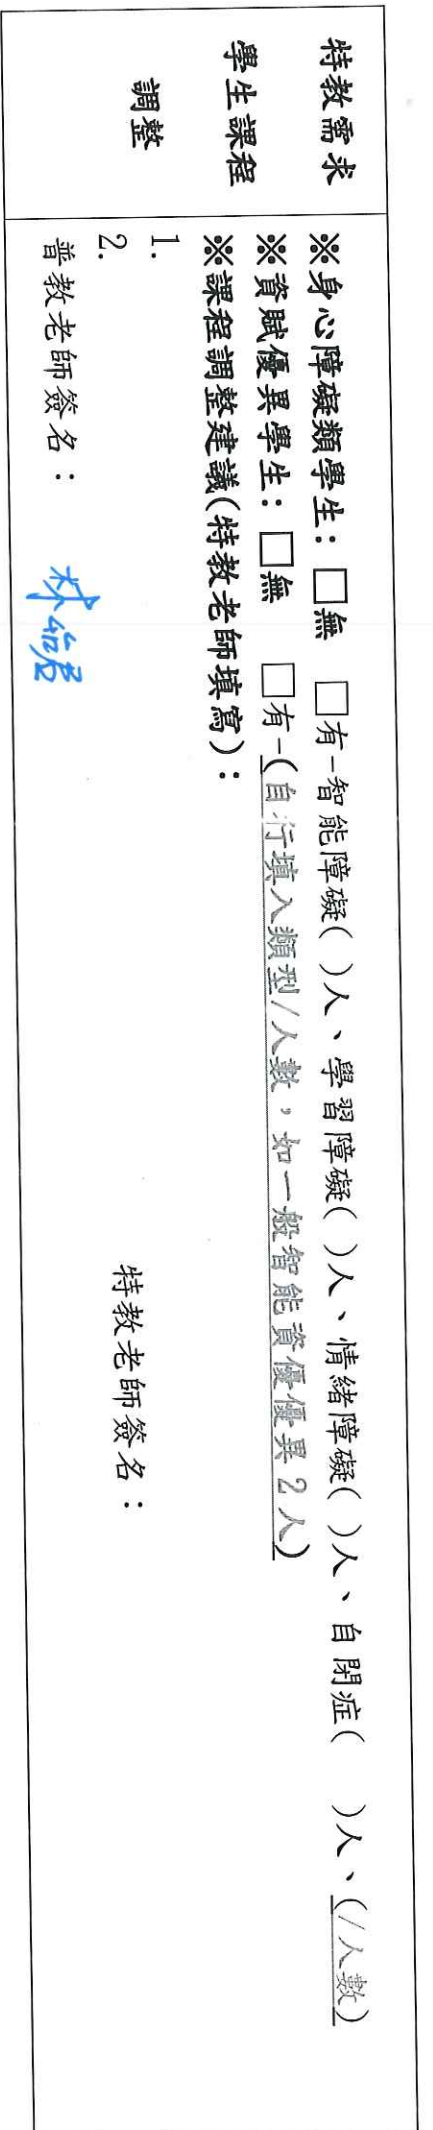 特教需求
學生課程
調整
※身心障礙類學生：□無　□有-智能障礙( )人、學習障礙( )人、情緒障礙( )人、自閉症(　　)人、(/人數)
※資賦優異學生：□無　□有-(自行填入類型/人數，如一般智能資優優異 2 人)
※課程調整建議(特教老師填寫)：
1.
2.
普教老師簽名：　林　　特教老師簽名：